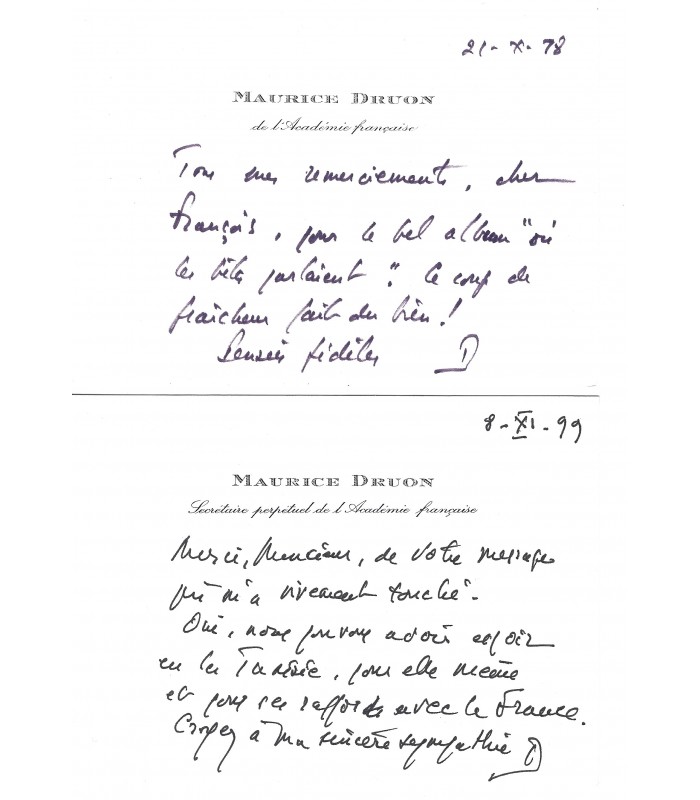 21-X-78
MAURICE DRUON
de l'Académie française
Tous mes remerciements, cher
François, pour le bel album "où
les bêtes parlaient". Ce coup de
fraîcheur fait du bien !
Pensées fidèles D
8-XI-99
MAURICE DRUON
Secrétaire perpétuel de l'Académie française
Merci, Monsieur, de votre message
qui m'a vivement touché.
Oui, nous pouvons avoir espoir
en la Tunisie, pour elle même
et pour ses rapports avec la France.
Croyez à ma sincère sympathie D